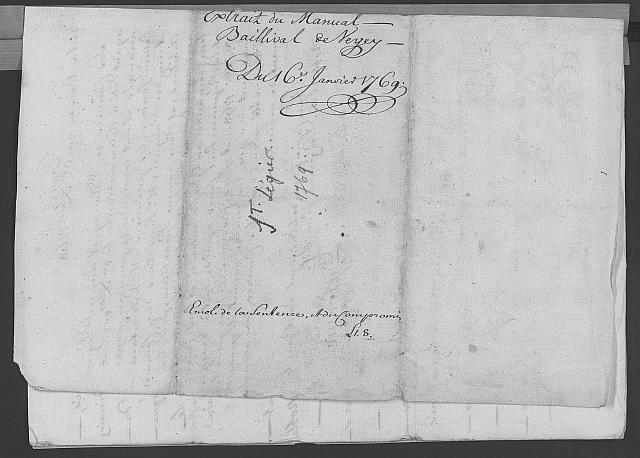 Extrait du Manual
Baillival de Vevey
Du 16e. Janvier 1769.
St. Légier
1769.
Emol. de la Sentence, & du Compromis
L1. 8.